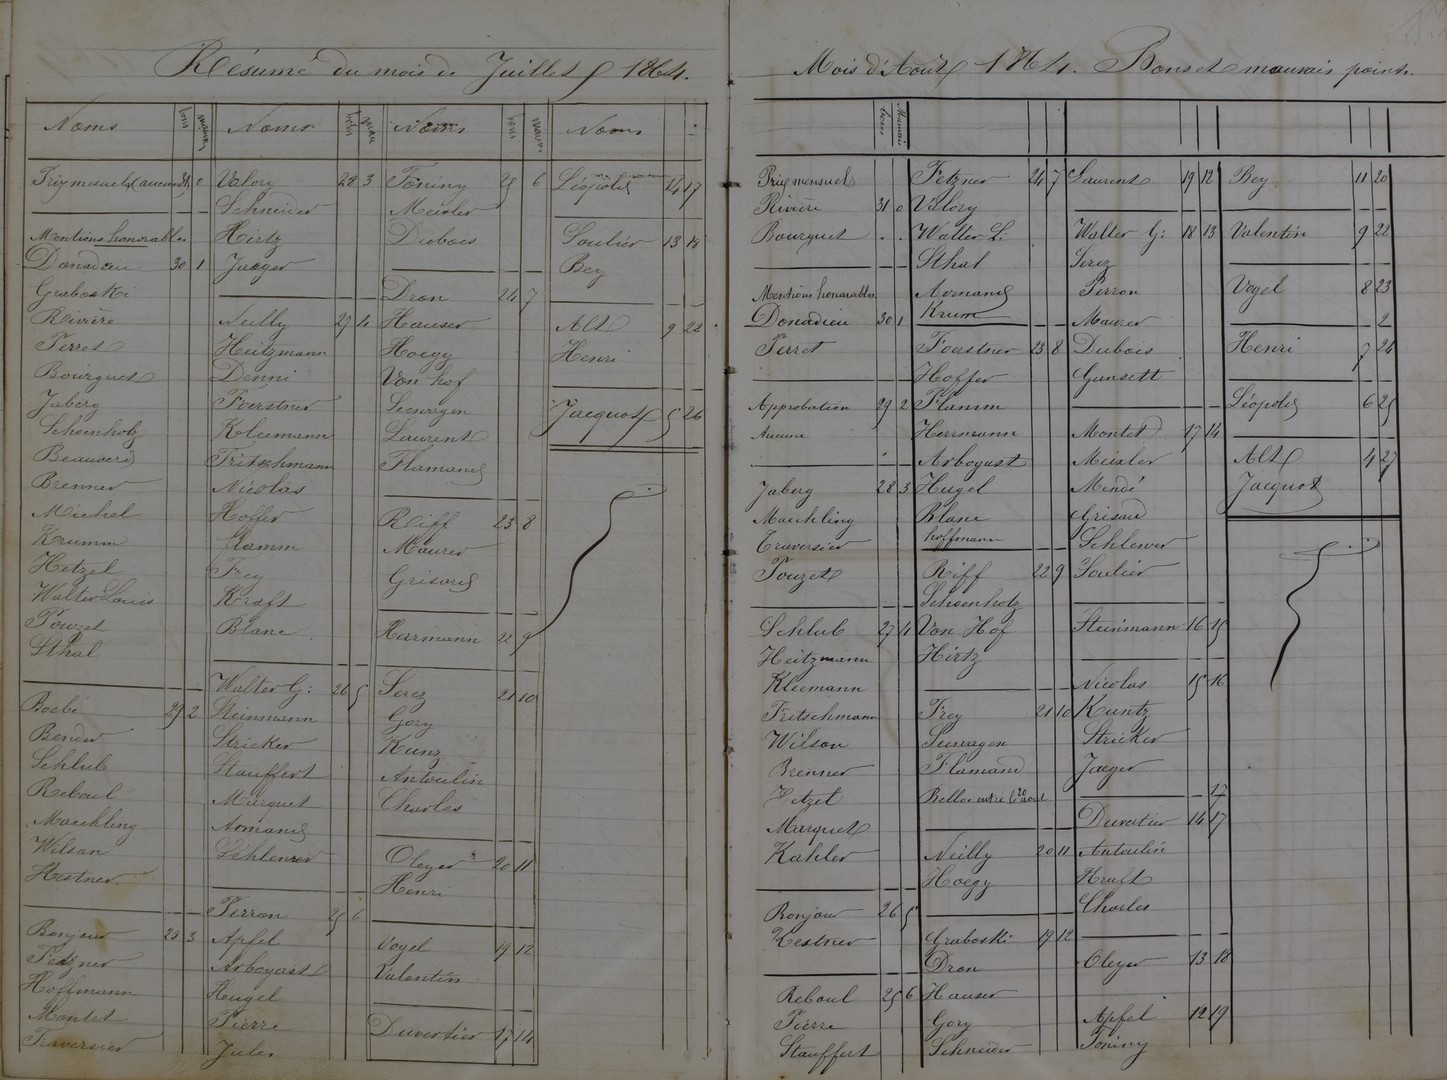 Résumé du mois de Juillet 1864.
Noms Bons Mauvais
Prix mensuels (aucun) 31 0
Mentions honorables
Donadieu 30 1
Graboski
Rivière
Perret
Bourguet
Jaberg
Schoenholz
Beauverd
Brenner
Michel
Krumm
Hetzel
Walter Louis
Pouzet
Sthal
Boebé 29 2
Bender
Schlub
Reboul
Maechling
Wilson
Kestner
Bonjour 28 3
Fetzner
Hoffmann
Montet
Traversier
Noms Bons Mauv
Valory 28 3
Schneider
Hirtz
Jaeger
Neilly 27 4
Heitzmann
Denni
Foerstner
Kleemann
Fritschmann
Nicolas
Hoffer
flamm
Frey
Kraft
Blanc
Walter G: 26 5
Steinmann
Stricker
Stauffert
Marguet
Armand
Schlenver
Perron 25 6
Apfel
Arbogast
Hugel
Pierre
Jules
Noms Bons Mauv
Toniny 25 6
Meisler
Dubois
Dron 24 7
Hauser
Hoegy
Von hof
Seewagen
Laurent
Flamand
Riff 23 8
Maurer
Grisard
Herrmann 22 9
Serez 21 10
Gory
Kunz
Antoulin
Charles
Oleyer 20 11
Henri
Vogel 19 12
Valentin
Duvertier 17 14
Noms
Léopold 14 17
Soulier 13 18
Bey
Alt 9 22
Henri
Jacquot 5 26
Mois d'Août 1864. Bons et mauvais points.
Bons Mauvais
Prix mensuel
Rivière 31 0
Bourguet . .
Mentions honorables
Donadieu 30 1
Perret
Approbation 29 2
Aucune
Jaberg 28 3
Maechling
Traversier
Pouzet
Schlub 27 4
Heitzmann
Kleemann
Fritschmann
Wilson
Brenner
Hetzel
Marguet
Kahler
Bonjour 26 5
Kestner
Reboul 25 6
Pierre
Stauffert
Fetzner 24 7
Valory
Walter L.
Sthal
Armand
Krumm
Foerstner 23 8
Hoffer
Flamm
Herrmann
Arbogast
Hugel
Blanc
hoffmann
Riff 22 9
Schoenholz
Von Hof
Hirtz
Frey 21 10
Seewagen
Flamand
Belloc entré le 20 aout
Neilly 20 11
Hoegy
Graboski 19 12
Dron
Hauser
Gory
Schneider
Laurent 19 12
Walter G: 18 13
Serez
Perron
Maurer
Dubois
Gunsett
Montet 17 14
Meisler
Mendé
Grisard
Schlenver
Soulier
Steinmann 16 15
Nicolas 15 16
Kuntz
Stricker
Jaeger
17
Duvertier 14 17
Antoulin
Kraft
Charles
Oleyer 13 18
Apfel 12 19
Toniny
Bey 11 20
Valentin 9 22
Vogel 8 23
2
Henri 7 24
Léopold 6 25
Alt 4 27
Jacquot